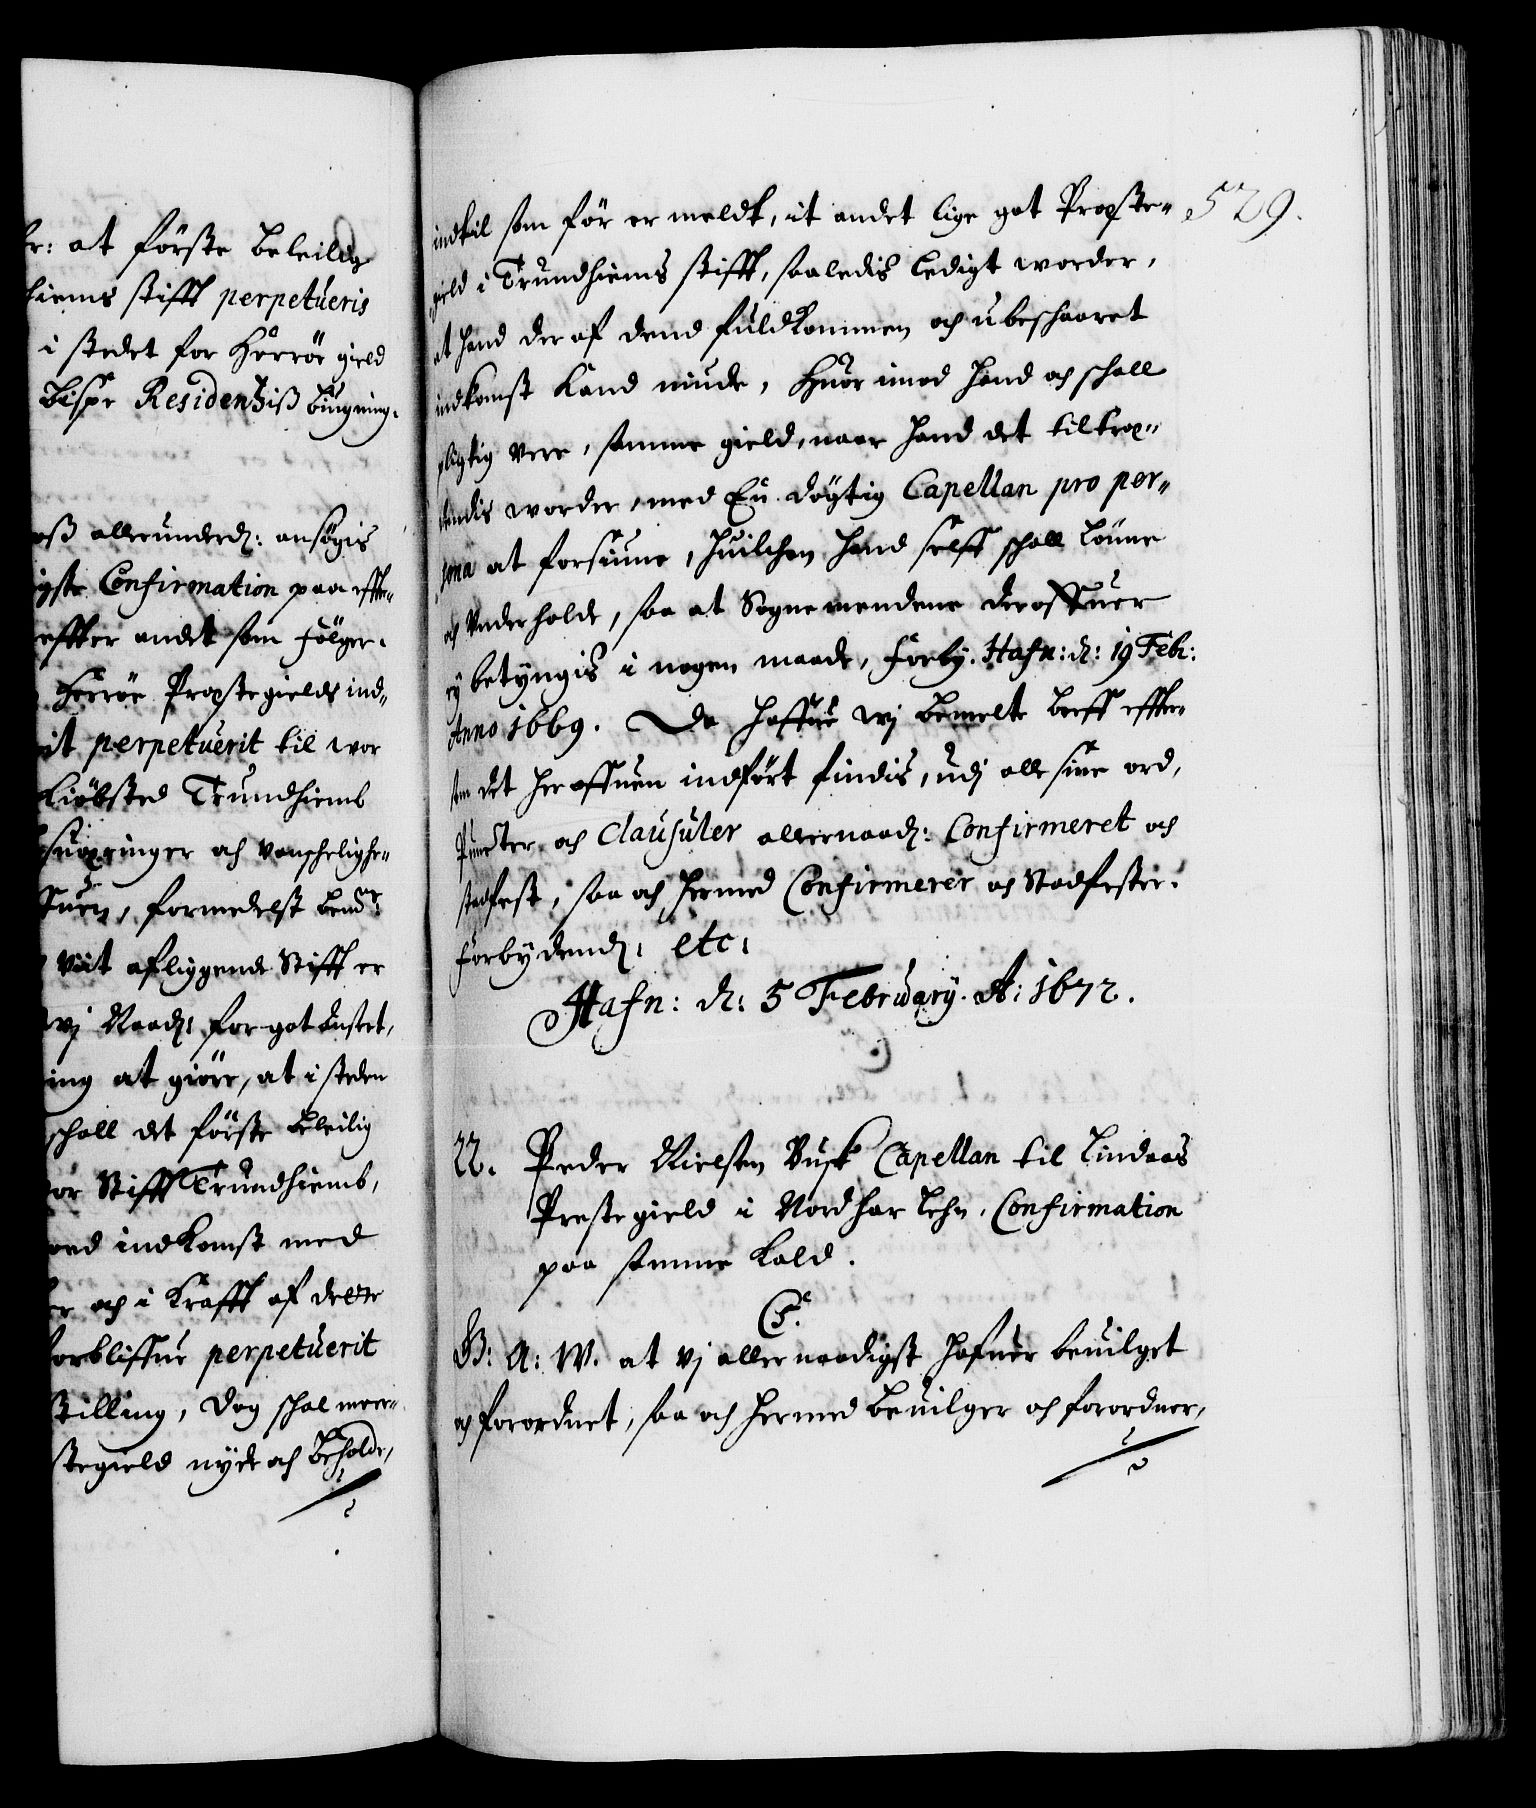 r: at förste beleilig
hiems stifft perpetueris
i stedet for Herröe gield
Bispe Residentziß bÿgning.
oß allerunderd: ansögis
igste Confirmation paa effte-
effter andet som fölger.
Herröe Prestegields ind-
it perpetuerit til wor
Kiöbsted Trundhiemb
och vanskelighe-
formedelst bemte
viit afliggende Stifft er
wj Naad: for got anseet,
ing at giöre, at i steden
schall det förste beleilig
or Stifft Trundhiemb,
indkomst med
er och i Krafft af dette
forbliffue perpetuerit
stilling, Dog schal meer-
stegield nyde och beholde,
529.
indtil som för er meldt, it andet lige got Preste-
gield i Trundhiems stifft, saaledis ledigt worder,
at hand der af dend fuldkommen och ubeschaaret
indkomst kand niude, Huor imod hand och schall
pligtig vere, samme gield, naar hand det tiltreep-
dendis worder, med En dögtig Capellan pro per-
sona at forsiune, huilchen hand selff schall lönne
och Underholde, saa at Sognemendene der offuer
ej betyngis i nogen maade, Forby. Hafn: d: 19 Febr:
Anno 1669. Da haffue wj bemelte breff effter-
som det her offuen indfört findis, udj alle sine ord,
Puncter och Clausuler allernaad: Confirmeret och
stadfest, saa och hermed Confirmerer och Stadfester.
Forbydend: etc:
Hafn: d: 5 February. A: 1672.
C5.
22. Peder Nielsen Busk Capellan til Lindaas
Prestegield i Nordhor Lehn, Confirmation
paa samme kald.
C5.
G: A: W. at vj allernaadigst hafuer beuilget
och forordnet, saa och hermed beuilger och forordner,